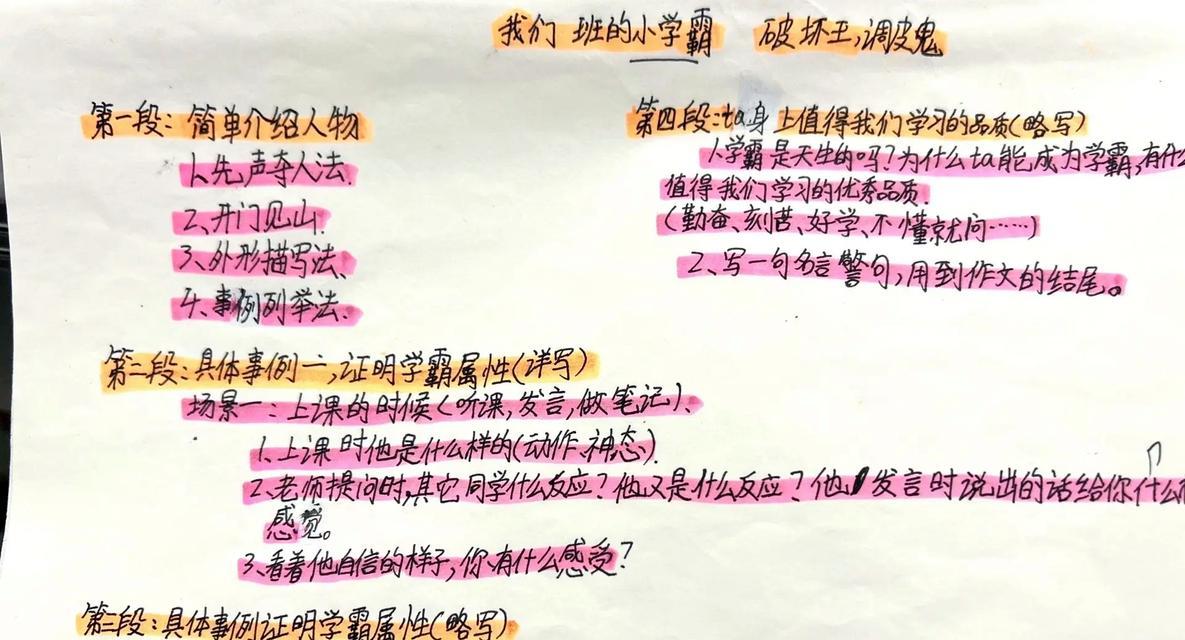 我们班的小学霸 破坏王,调皮鬼
第一段:简单介绍人物
1.先声夺人法.
2、开门见山.
3、外形描写法、
4、事例列举法.
第四段:ta身上值得我们学习的品质(略写)
1.学霸是天生的吗?为什么ta能成为学霸,有什
值得我们学习的优秀品质.
(勤奋、刻苦、好学、不懂就问……)
2、写一句名言警句,用到作文的结尾。
第二段:具体事例一,证明学霸属性(详写)
场景一:上课的时候(听课,发言,做笔记)、
1.上课时他是什么样的(动作、神态).
2、老师提问时,其它同学什么反应?他又是什么反应?他发言时说出的话给你什么
感觉。
3、看着他自信的样子,你有什么感受?
第三段:具体事例证明学霸属性(略写)